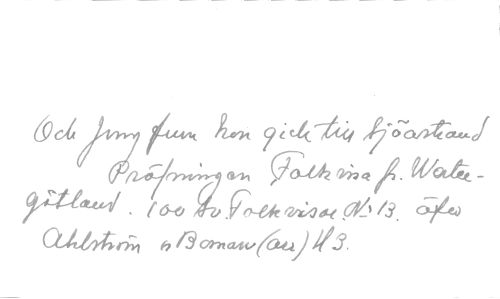 Och Jungfrun hon gick till sjöastrand
Pröfningen Folkvisa fr. Wester-
götland. 100 Sv. Folkvisor N: 13. äfv
Ahlström o Boman (arr) H 3.